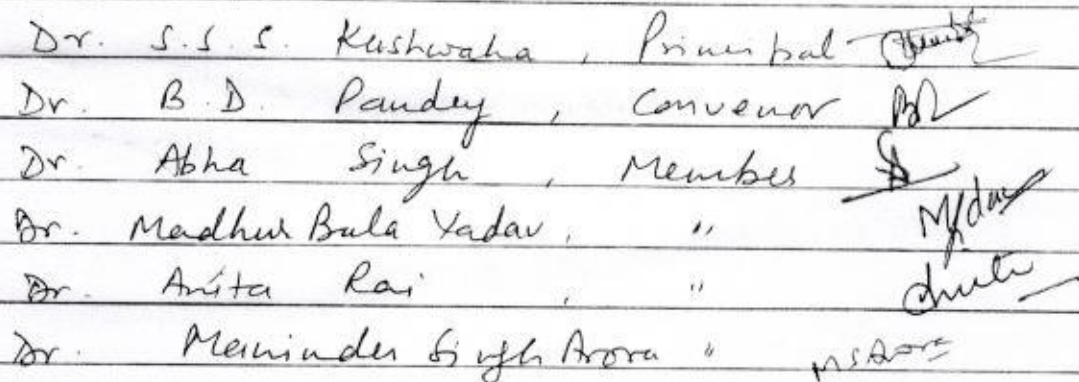 Dr. S.S.S. Kushwaha, Principal
Dr. B.D. Pandey, Convenor
Dr. Abha Singh, Member
Dr. Madhur Bala Yadav, "
Dr. Anita Rai, "
Dr. Maninder Singh Arora " MSArora